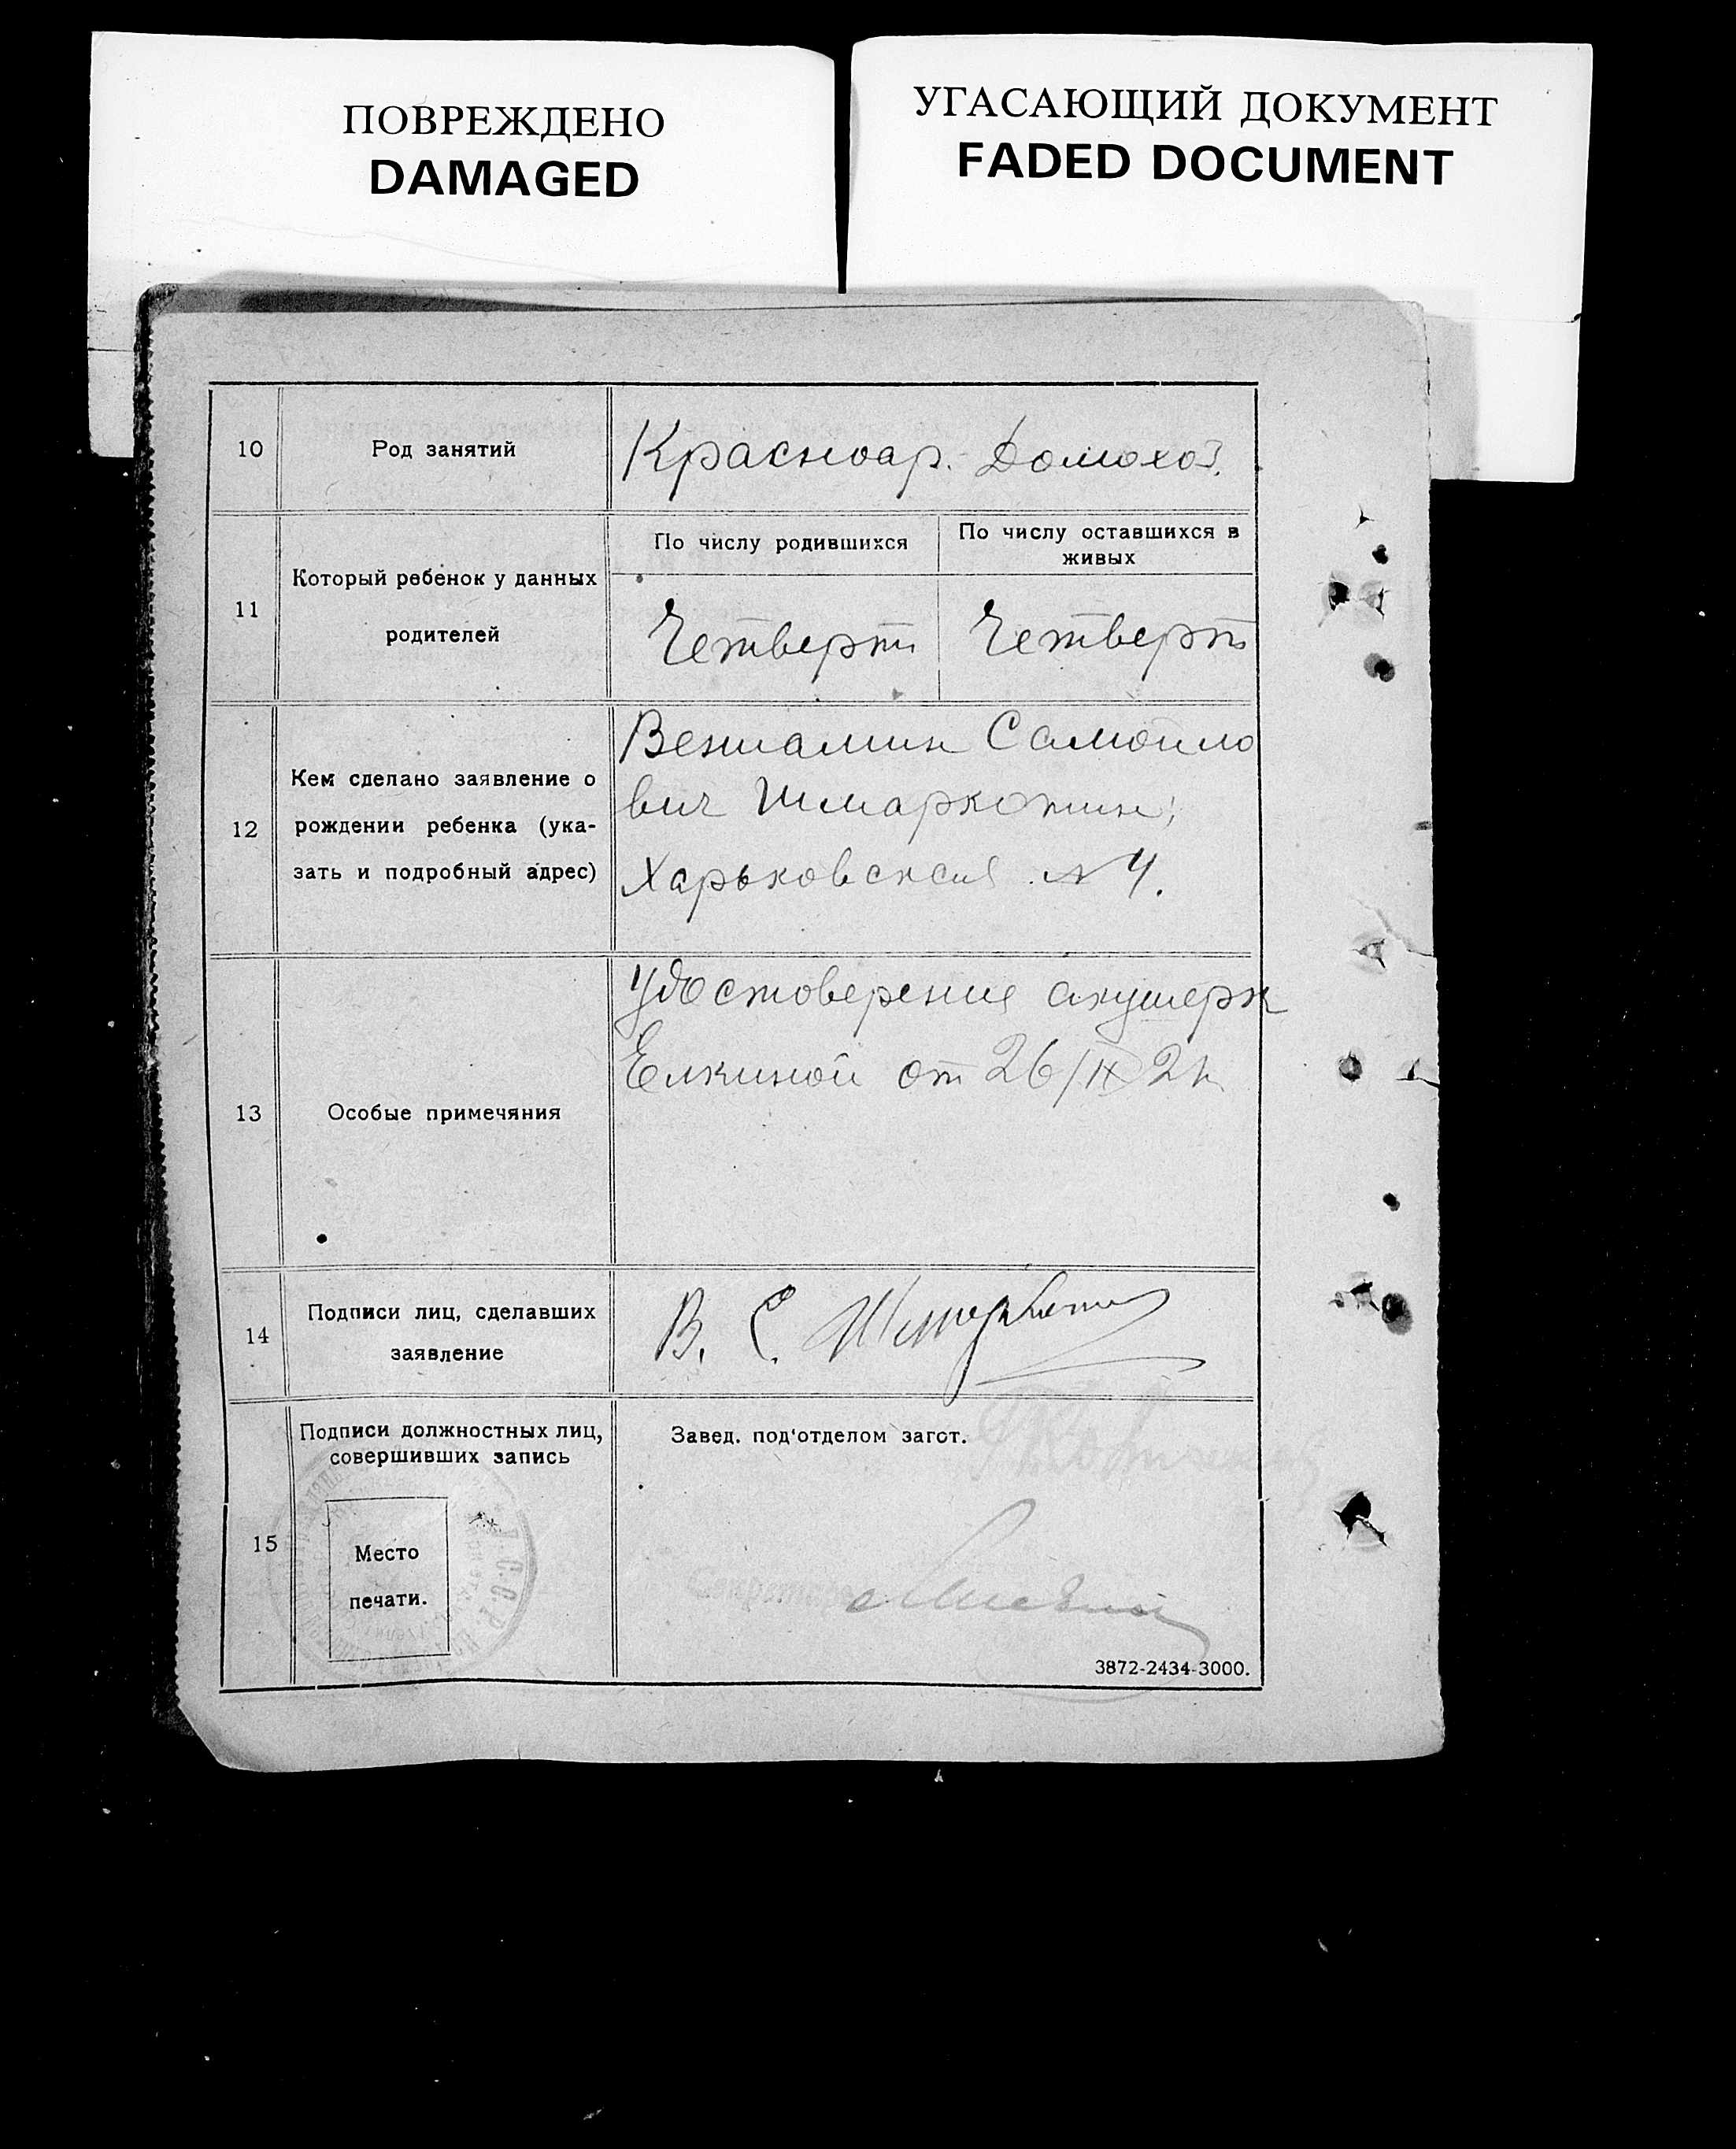 ПОВРЕЖДЕНО
DAMAGED
УГАСАЮЩИЙ ДОКУМЕНТ
FADED DOCUMENT
10
Род занятий
Красноар. - Домохоз.
11
Который ребенок у данных
родителей
По числу родившихся
По числу оставшихся в
живых
Четверт
Четверт
12
Кем сделано заявление о
рождении ребенка (ука-
зать и подробный адрес)
Вениамин Самойло
вич Шмаркотин;
Харьковская № 4.
13
Особые примечяния
Удостоверение акушерк
Елкиной от 26/IX
14
Подписи лиц, сделавших
заявление
В. С.
15
Подписи должностных лиц,
совершивших запись
Место
печати.
Завед. под‘отделом загот.
Секретарь
3872-2434-3000.